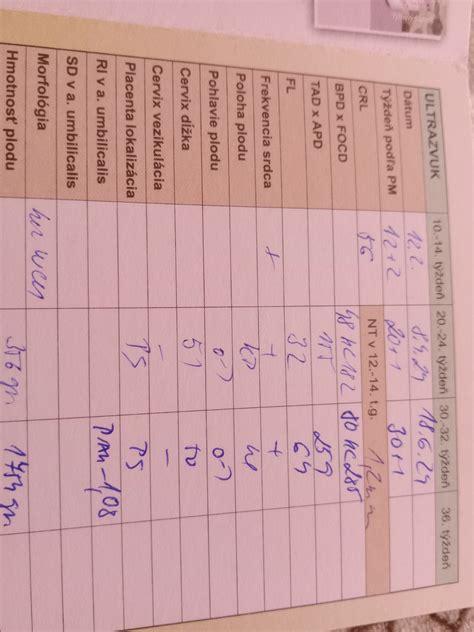 ULTRAZVUK 10.-14. týždeň 20.-24. týždeň 30.-32. týždeň 36. týždeň
Dátum 12.2. 8.4.24 18.6.24
Týždeň podľa PM 12+2 20+1 30+1
CRL 56 NT v 12.-14. t.g. 1,2mm
BPD x FOCD 48 HC182 80 HC285
TAD x APD 259
FL 32 64
Frekvencia srdca + + +
Poloha plodu
Pohlavie plodu
Cervix dĺžka 51
Cervix vezikulácia – –
Placenta lokalizácia PS PS
RI v a. umbilicalis
SD v a. umbilicalis
Morfológia
Hmotnosť plodu 376 gr